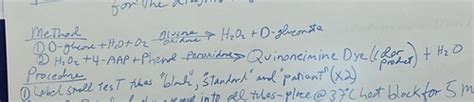 for the
Method
① D-glucose + H₂O + O₂ —Glucose oxidase→ H₂O₂ + D-gluconate
② H₂O₂ + 4-AAP + Phenol —Peroxidase→ Quinoneimine Dye (color product) + H₂O
Procedure
① Label small test tubes "blank", "standard" and "patient" (x2)
into all tubes - place @ 37°C heat block for 5 m